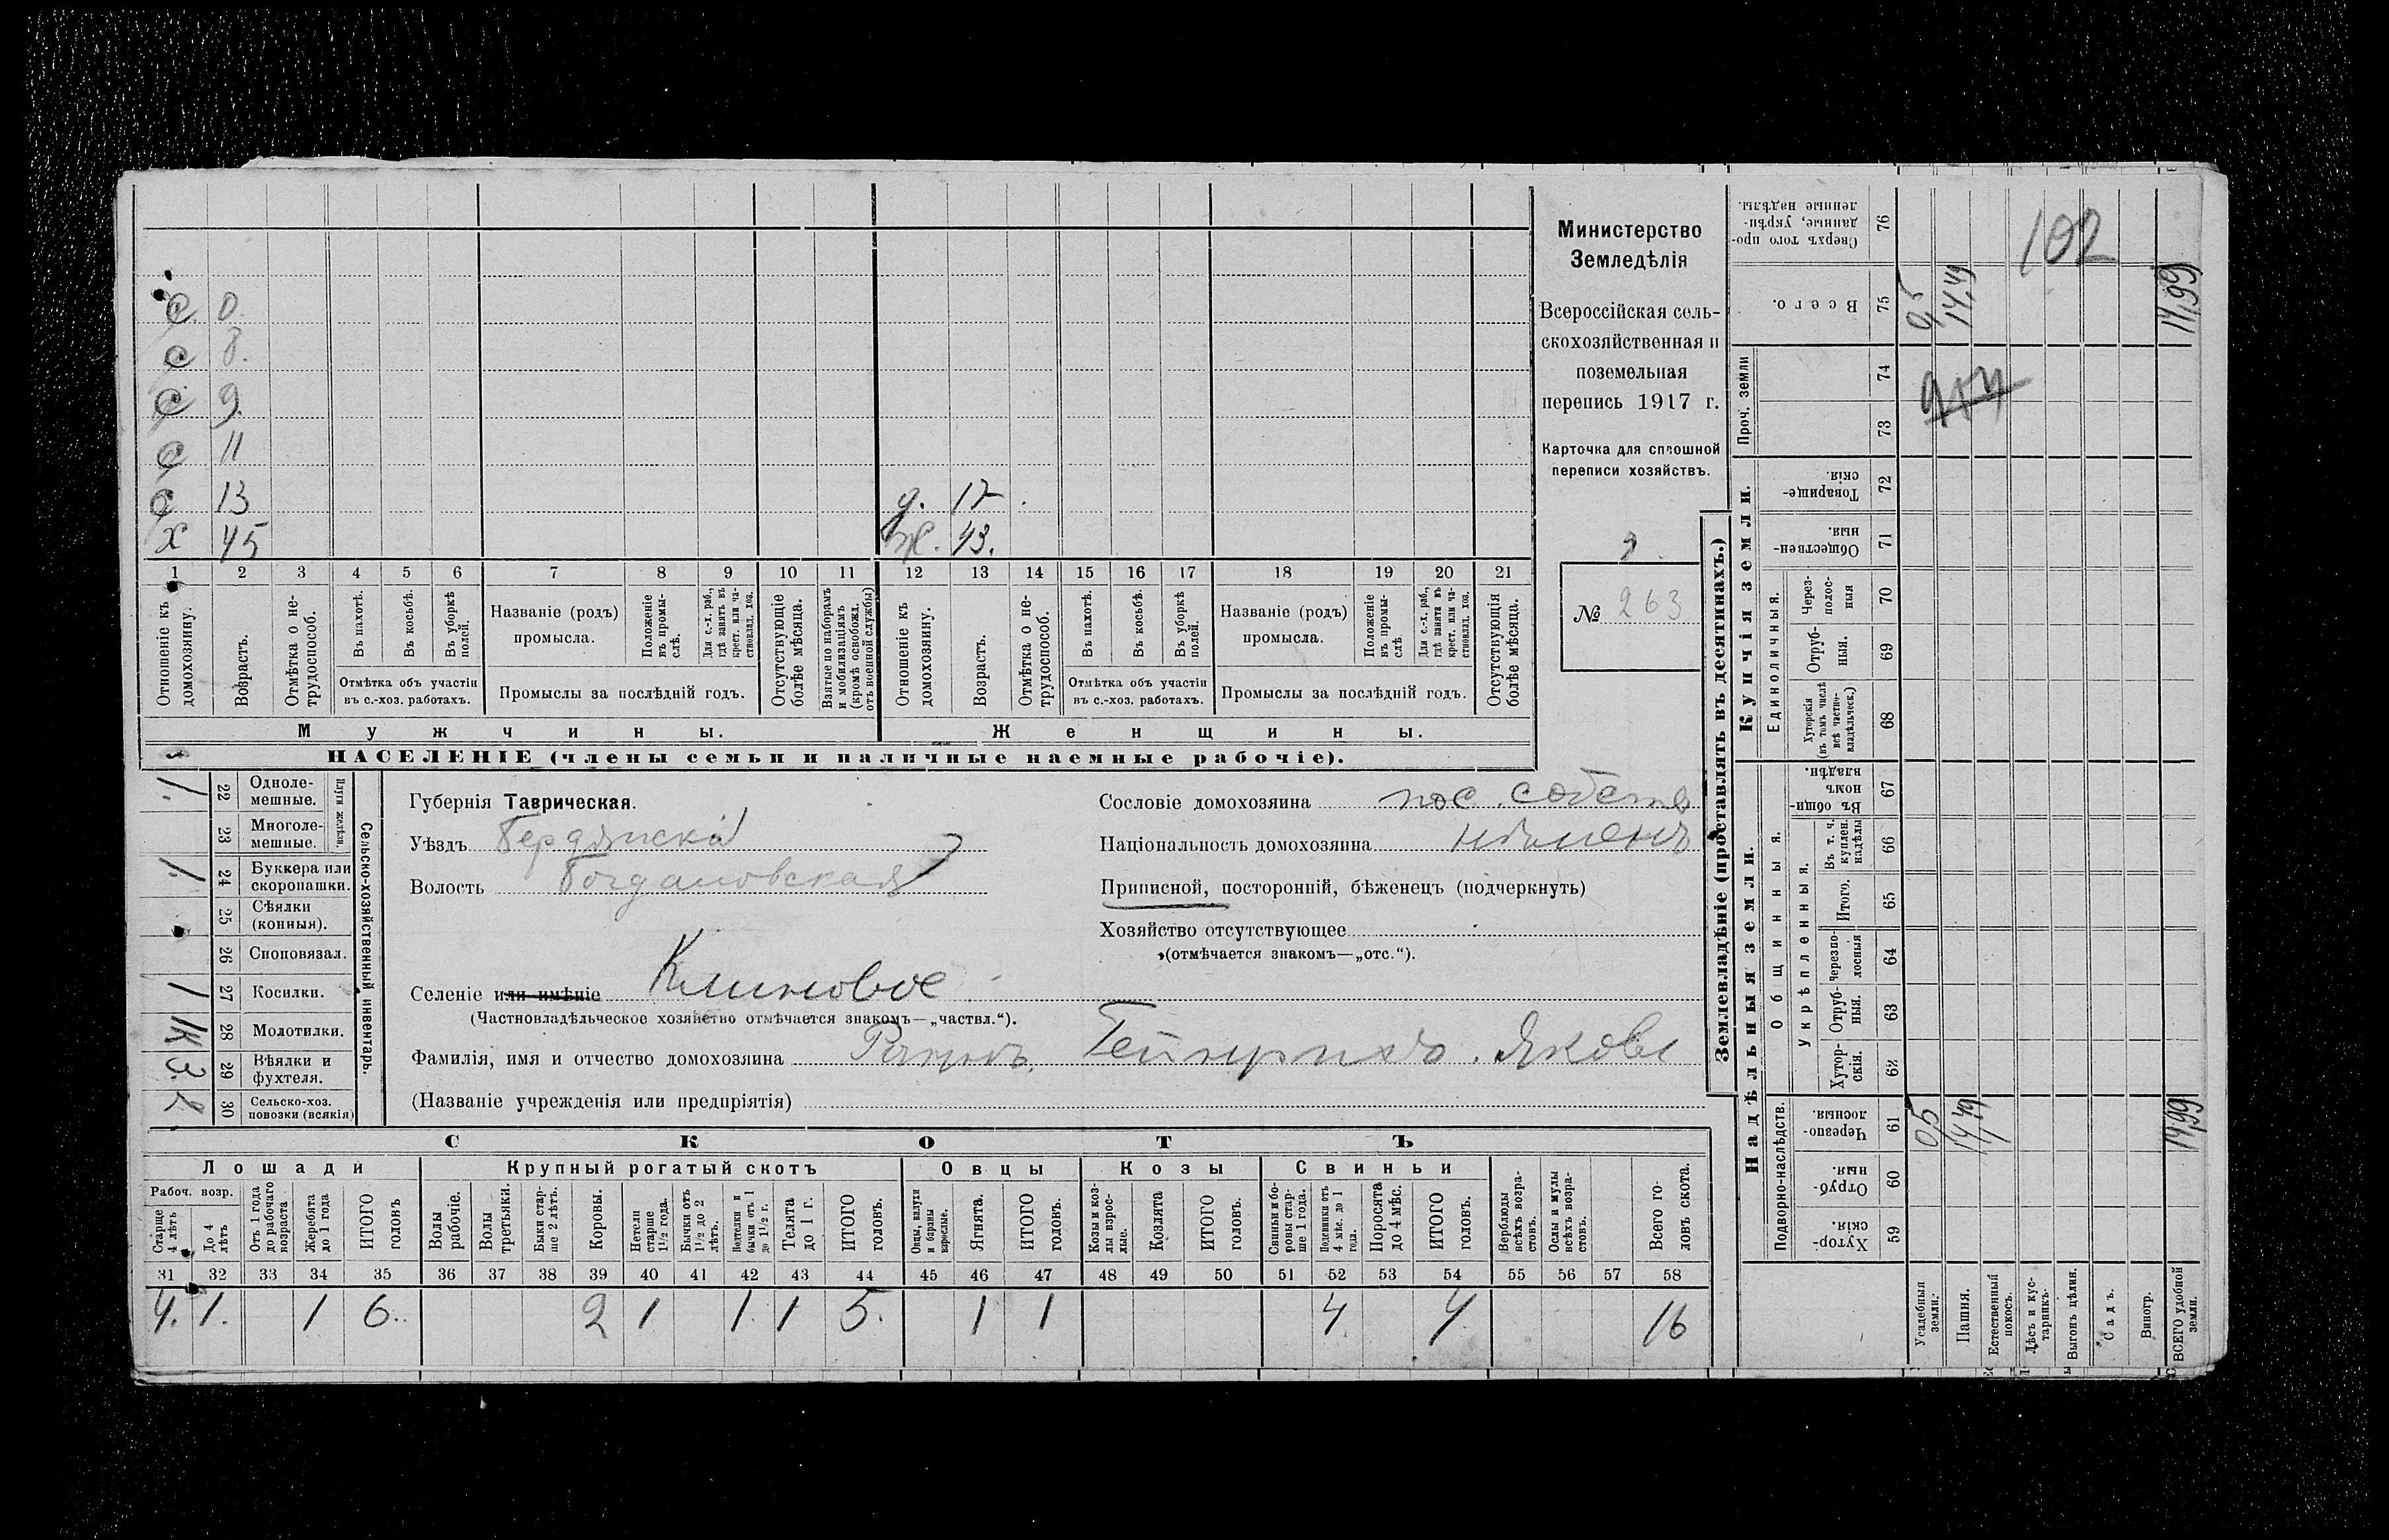 Министерство
Земледѣлія
Всероссійская сель-
скохозяйственная и
поземельная
перепись 1917 г.
Карточка для сплошной
переписи хозяйствъ.
№ 263
С. 0.
С 8.
С 9.
С 11
С 13 д. 17
Х 45 ж. 43.
1 2 3 4 5 6 7 8 9 10 11 12 13 14 15 16 17 18 19 20 21
Отношеніе къ домохозяину.
Возрастъ.
Отмѣтка о не-трудоспособ.
Въ пахотѣ.
Въ косьбѣ.
Въ уборкѣ полей.
Отмѣтка объ участіи въ с.-хоз. работахъ.
Названіе (родъ) промысла.
Положеніе въ промы-слѣ.
Для с.-х. раб., гдѣ занятъ въ крест. или ча-стновлад. хоз.
Промыслы за послѣдній годъ.
Отсутствующіе болѣе мѣсяца.
Взятые по наборамъ и мобилизаціямъ (кромѣ освобожд. отъ военной службы)
Отношеніе къ домохозяину.
Возрастъ.
Отмѣтка о не-трудоспособ.
Въ пахотѣ.
Въ косьбѣ.
Въ уборкѣ полей.
Отмѣтка объ участіи въ с.-хоз. работахъ.
Названіе (родъ) промысла.
Положеніе въ промы-слѣ.
Для с.-х. раб., гдѣ занята въ крест. или ча-стновлад. хоз.
Промыслы за послѣдній годъ.
Отсутствующія болѣе мѣсяца.
Мужчины. Женщины.
НАСЕЛЕНІЕ (члены семьи и наличные наемные рабочіе).
Сельско-хозяйственный инвентарь.
Плуги желѣзн.
1. 22 Одноле-мешные.
23 Многоле-мешные.
1. 24 Буккера или скоропашки.
25 Сѣялки (конныя).
26 Сноповязал.
1 27 Косилки.
1К 28 Молотилки.
3. 29 Вѣялки и фухтеля.
2 30 Сельско-хоз. повозки (всякія)
Губернія Таврическая.
Уѣздъ Бердянскій
Волость Богдановская
Селеніе или имѣніе Клиновое
(Частновладѣльческое хозяйство отмѣчается знакомъ—„частвл.“).
Фамилія, имя и отчество домохозяина Гейнрихъ Яковл
(Названіе учрежденія или предпріятія)
Сословіе домохозяина пос. собств
Національность домохозяина нѣмецъ
Приписной, посторонній, бѣженецъ (подчеркнуть)
Хозяйство отсутствующее
(отмѣчается знакомъ—„отс.“).
СКОТЪ
Лошади Крупный рогатый скотъ Овцы Козы Свиньи
Рабоч. возр.
Старше 4 лѣтъ
До 4 лѣтъ
Отъ 1 года до рабочаго возраста
Жеребята до 1 года
ИТОГО головъ
Волы рабочіе.
Волы третьяки.
Быки стар-ше 2 лѣтъ.
Коровы.
Нетели старше 1½ года.
Бычки отъ 1½ до 2 лѣтъ.
Подтелки и бычки отъ 1 до 1½ г.
Телята до 1 г.
ИТОГО головъ.
Овцы, валухи и бараны взрослые.
Ягнята.
ИТОГО головъ.
Козы и коз-лы взрос-лые.
Козлята
ИТОГО головъ.
Свиньи и бо-ровы стар-ше 1 года.
Подсвинки отъ 4 мѣс. до 1 года.
Поросята до 4 мѣс.
ИТОГО головъ.
Верблюды всѣхъ возра-стовъ.
Ослы и мулы всѣхъ возра-стовъ.
Всего го-ловъ скота.
31 32 33 34 35 36 37 38 39 40 41 42 43 44 45 46 47 48 49 50 51 52 53 54 55 56 57 58
4. 1. 1 6. 2 1 1. 1 5. 1 1 4 4 16
Землевладѣніе (проставлять въ десятинахъ.)
Купчія земли.
Надѣльныя земли.
Проч. земли
Единоличныя.
Общинныя.
Укрѣпленныя.
Подворно-наслѣдств.
76 Сверхъ того про-даныe, укрѣп-ленные надѣлы.
75 Всего.
74
73
72 Товарище-скія.
71 Обществен-ныя.
70 Через-полос-ныя
69 Отруб-ныя.
68 Хуторскія (въ томъ числѣ всѣ частно-владѣльческ.)
67 Въ общин-номъ владѣн.
66 Въ т. ч. куплен. надѣлы
65 Итого.
64 Черезпо-лосныя
63 Отруб-ныя.
62 Хутор-скія.
61 Черезпо-лосныя.
60 Отруб-ныя.
59 Хутор-скія.
102
0,5 14,49 14,99
0,5 14,49 14,99
Усадебныя земли.
Пашня.
Естественный покосъ.
Лѣсъ и кус-тарникъ.
Выгонъ цѣлин.
Садъ.
Виногр.
ВСЕГО удобной земли.